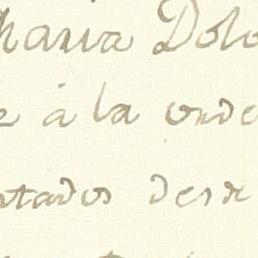 Maria Dolo
e à la orde
ntados desde